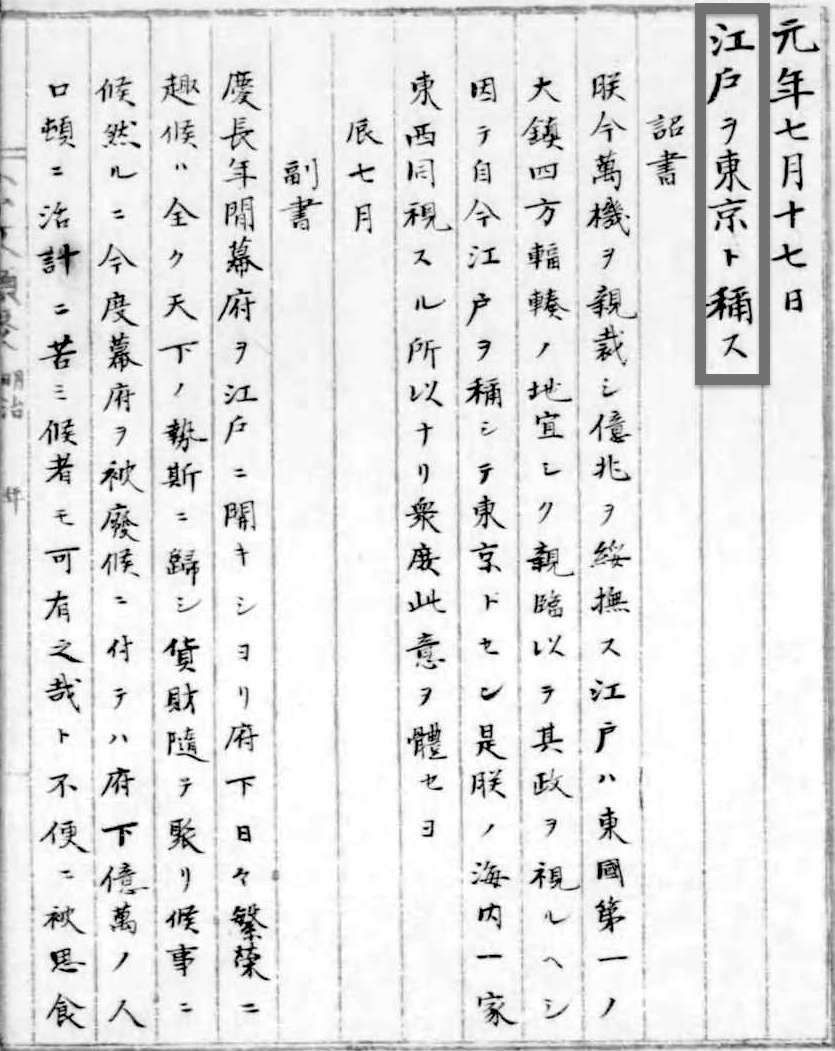 元年七月十七日
江戸ヲ東京ト稱ス
詔書
朕今萬機ヲ親裁シ億兆ヲ綏撫ス江戸ハ東國第一ノ
大鎮四方輻輳ノ地宜シク親臨以テ其政ヲ視ルヘシ
因テ自今江戸ヲ稱シテ東京トセン是朕ノ海内一家
東西同視スル所以ナリ衆庶此意ヲ體セヨ
辰七月
副書
慶長年間幕府ヲ江戸ニ開キシヨリ府下日々繁榮ニ
趣候ハ全ク天下ノ勢斯ニ歸シ貨財隨テ聚リ候事ニ
候然ルニ今度幕府ヲ被廢候ニ付テハ府下億萬ノ人
口頓ニ活計ニ苦ミ候者モ可有之哉ト不便ニ被思食
明治